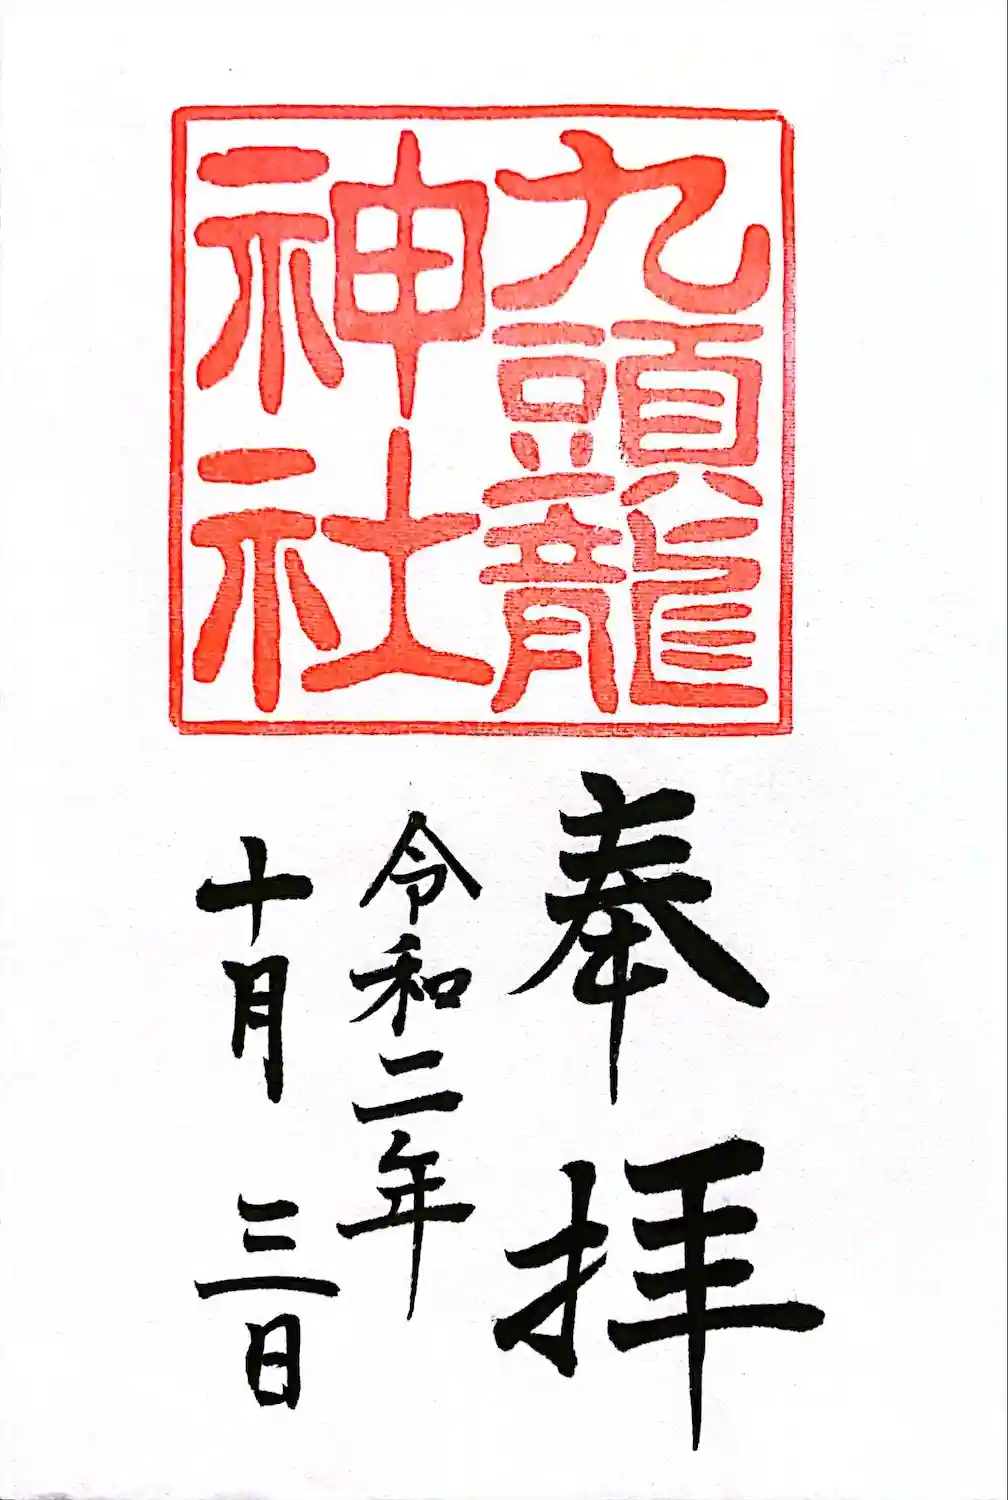 九頭龍
神社
奉拝
令和二年
十月三日